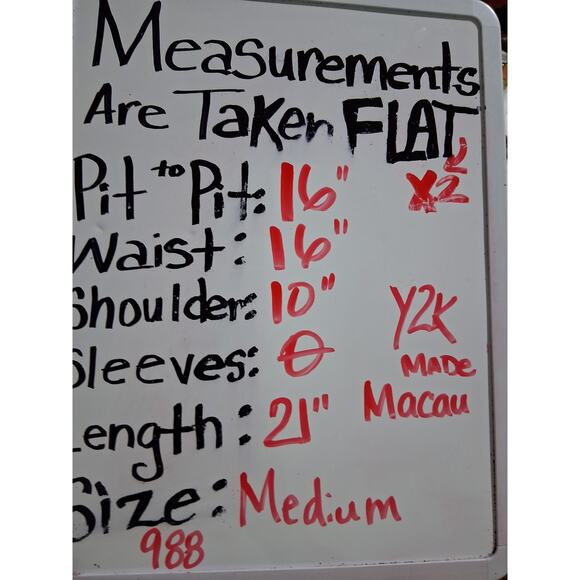 Measurements
Are Taken FLAT
Pit to Pit: 16" x2
Waist: 16"
Shoulder: 10"
Y2K
Sleeves: 0
MADE
Macau
Length: 21"
Size: Medium
988